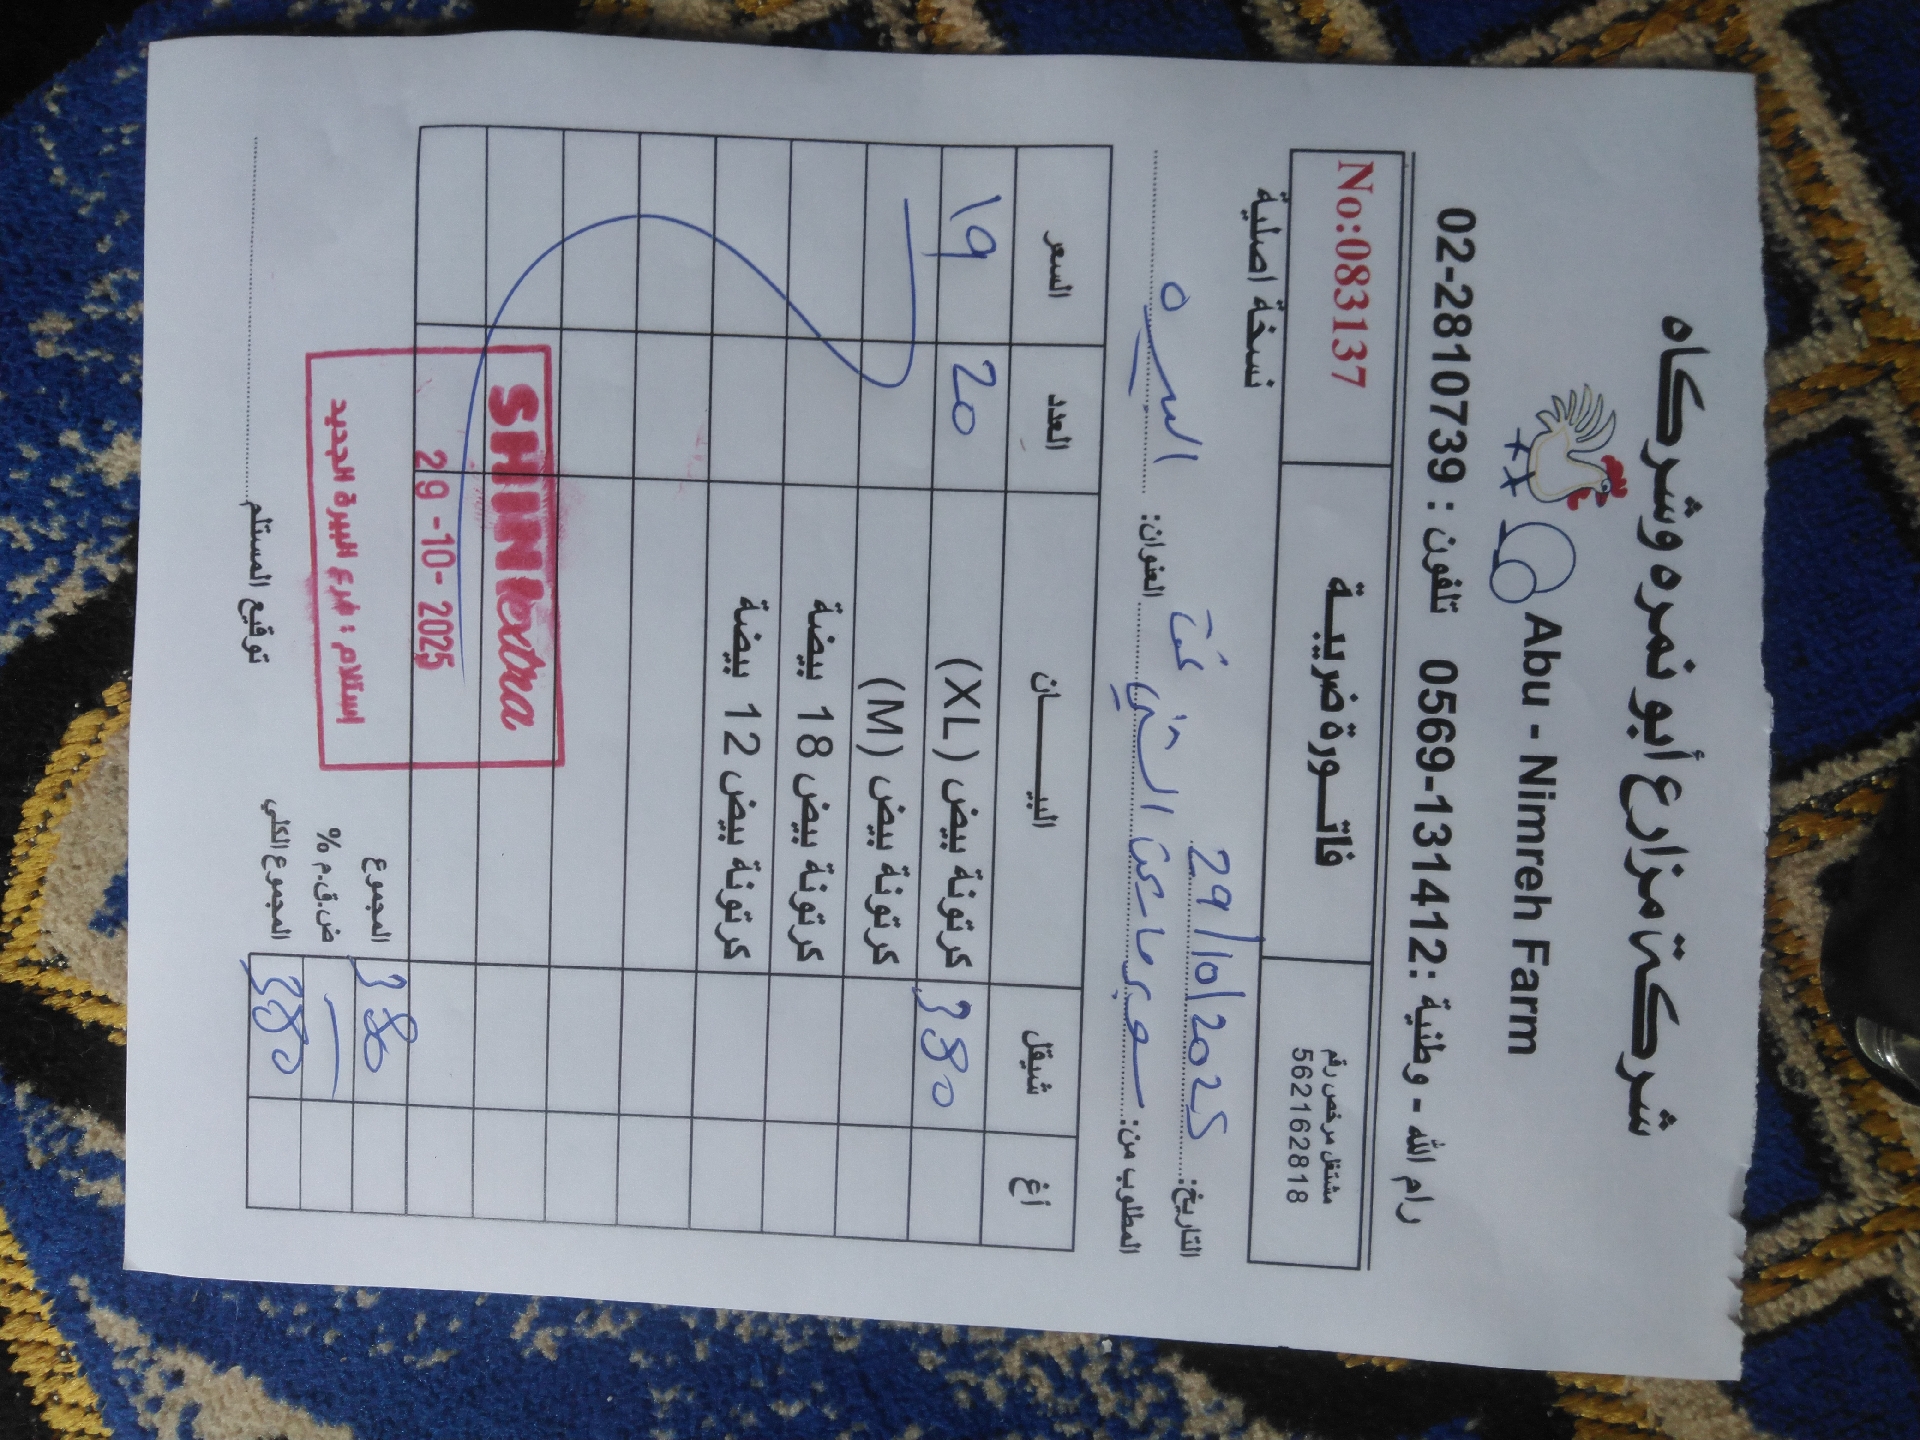 شركة مزارع أبو نمره وشركاه
Abu - Nimreh Farm
رام الله - وطنية : 0569-131412 تلفون : 02-2810739
مشتغل مرخص رقم
562162818
فاتـورة ضريبـة
No:083137
نسخة اصلية
التاريخ: 29/10/2025
المطلوب من: العنوان: البيره
أغ شيقل البيـــــان العدد السعر
380 كرتونة بيض (XL) 20 19
كرتونة بيض (M)
كرتونة بيض 18 بيضة
كرتونة بيض 12 بيضة
SHINIextra
29 -10- 2025
استلام : فرع البيرة الجديد
المجموع 380
ض.ق.م %
المجموع الكلي 380
توقيع المستلم